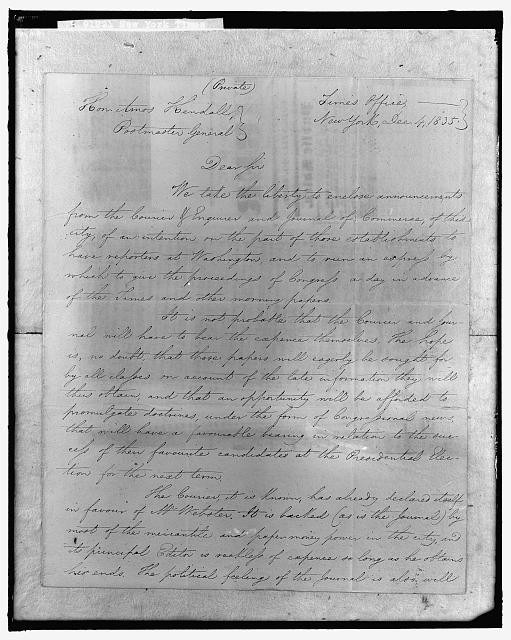 (Private)
Hon. Amos Kendall,
Postmaster General
Times Office,
New York, Dec. 4, 1835.
Dear Sir
We take the liberty to enclose announcements
from the Courier & Enquirer and Journal of Commerce, of this
city, of an intention on the part of those establishments to
have reporters at Washington, and to run an express by
which to give the proceedings of Congress a day in advance
of the Times and other morning papers.
It is not probable that the Courier and Jour-
nal will have to bear the expense themselves. The hope
is, no doubt, that those papers will eagerly be sought for
by all classes on account of the late information they will
thus obtain, and that an opportunity will be afforded to
promulgate doctrines, under the form of Congressional news,
that will have a favourable bearing in relation to the suc-
cess of their favourite candidates at the Presidential Elec-
tion for the next term.
The Courier, it is known, has already declared itself
in favour of Mr Webster. It is backed (as is the Journal) by
most of the mercantile and paper money power in the city, and
its principal Editor is reckless of expense so long as he obtains
his ends. The political feeling of the Journal is also, will